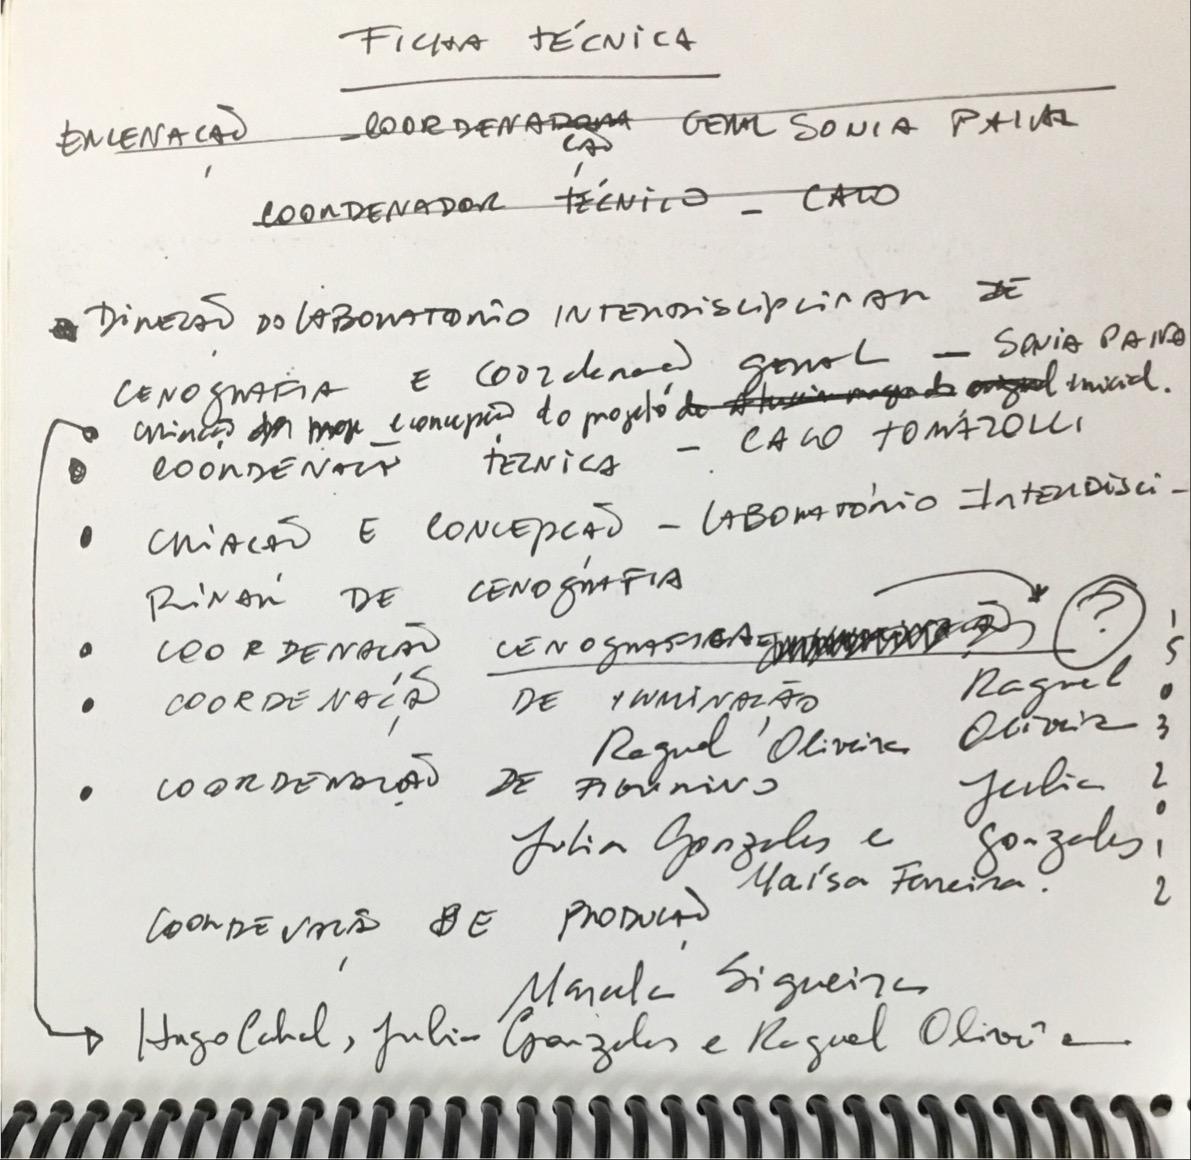 FICHA TÉCNICA
ENCENAÇÃO COORDENADORA GERAL SONIA PAIVA
ÇÃO
COORDENADOR TÉCNICO - CACO
DIREÇÃO DO LABORATÓRIO INTERDISCIPLINAR DE
CENOGRAFIA E COORDENAÇÃO GERAL - SONIA PAIVA
CRIAÇÃO e concepção do projeto do original inicial.
COORDENAÇÃO TÉCNICA - CACO TOMAZOLLI
CRIAÇÃO E CONCEPÇÃO - LABORATÓRIO INTERDISCI-
PLINAR DE CENOGRAFIA
COORDENAÇÃO CENOGRAFICA ?
COORDENAÇÃO DE ILUMINAÇÃO Raquel
Raquel Oliveira Oliveira
COORDENAÇÃO DE FIGURINO Julia
Julia Gonzales e gonzales
Maísa Ferreira.
COORDENAÇÃO DE PRODUÇÃO
Marcela Siqueira
Hugo Cabral, Julia Gonzales e Raquel Oliveira
15
0
3
2
0
1
2